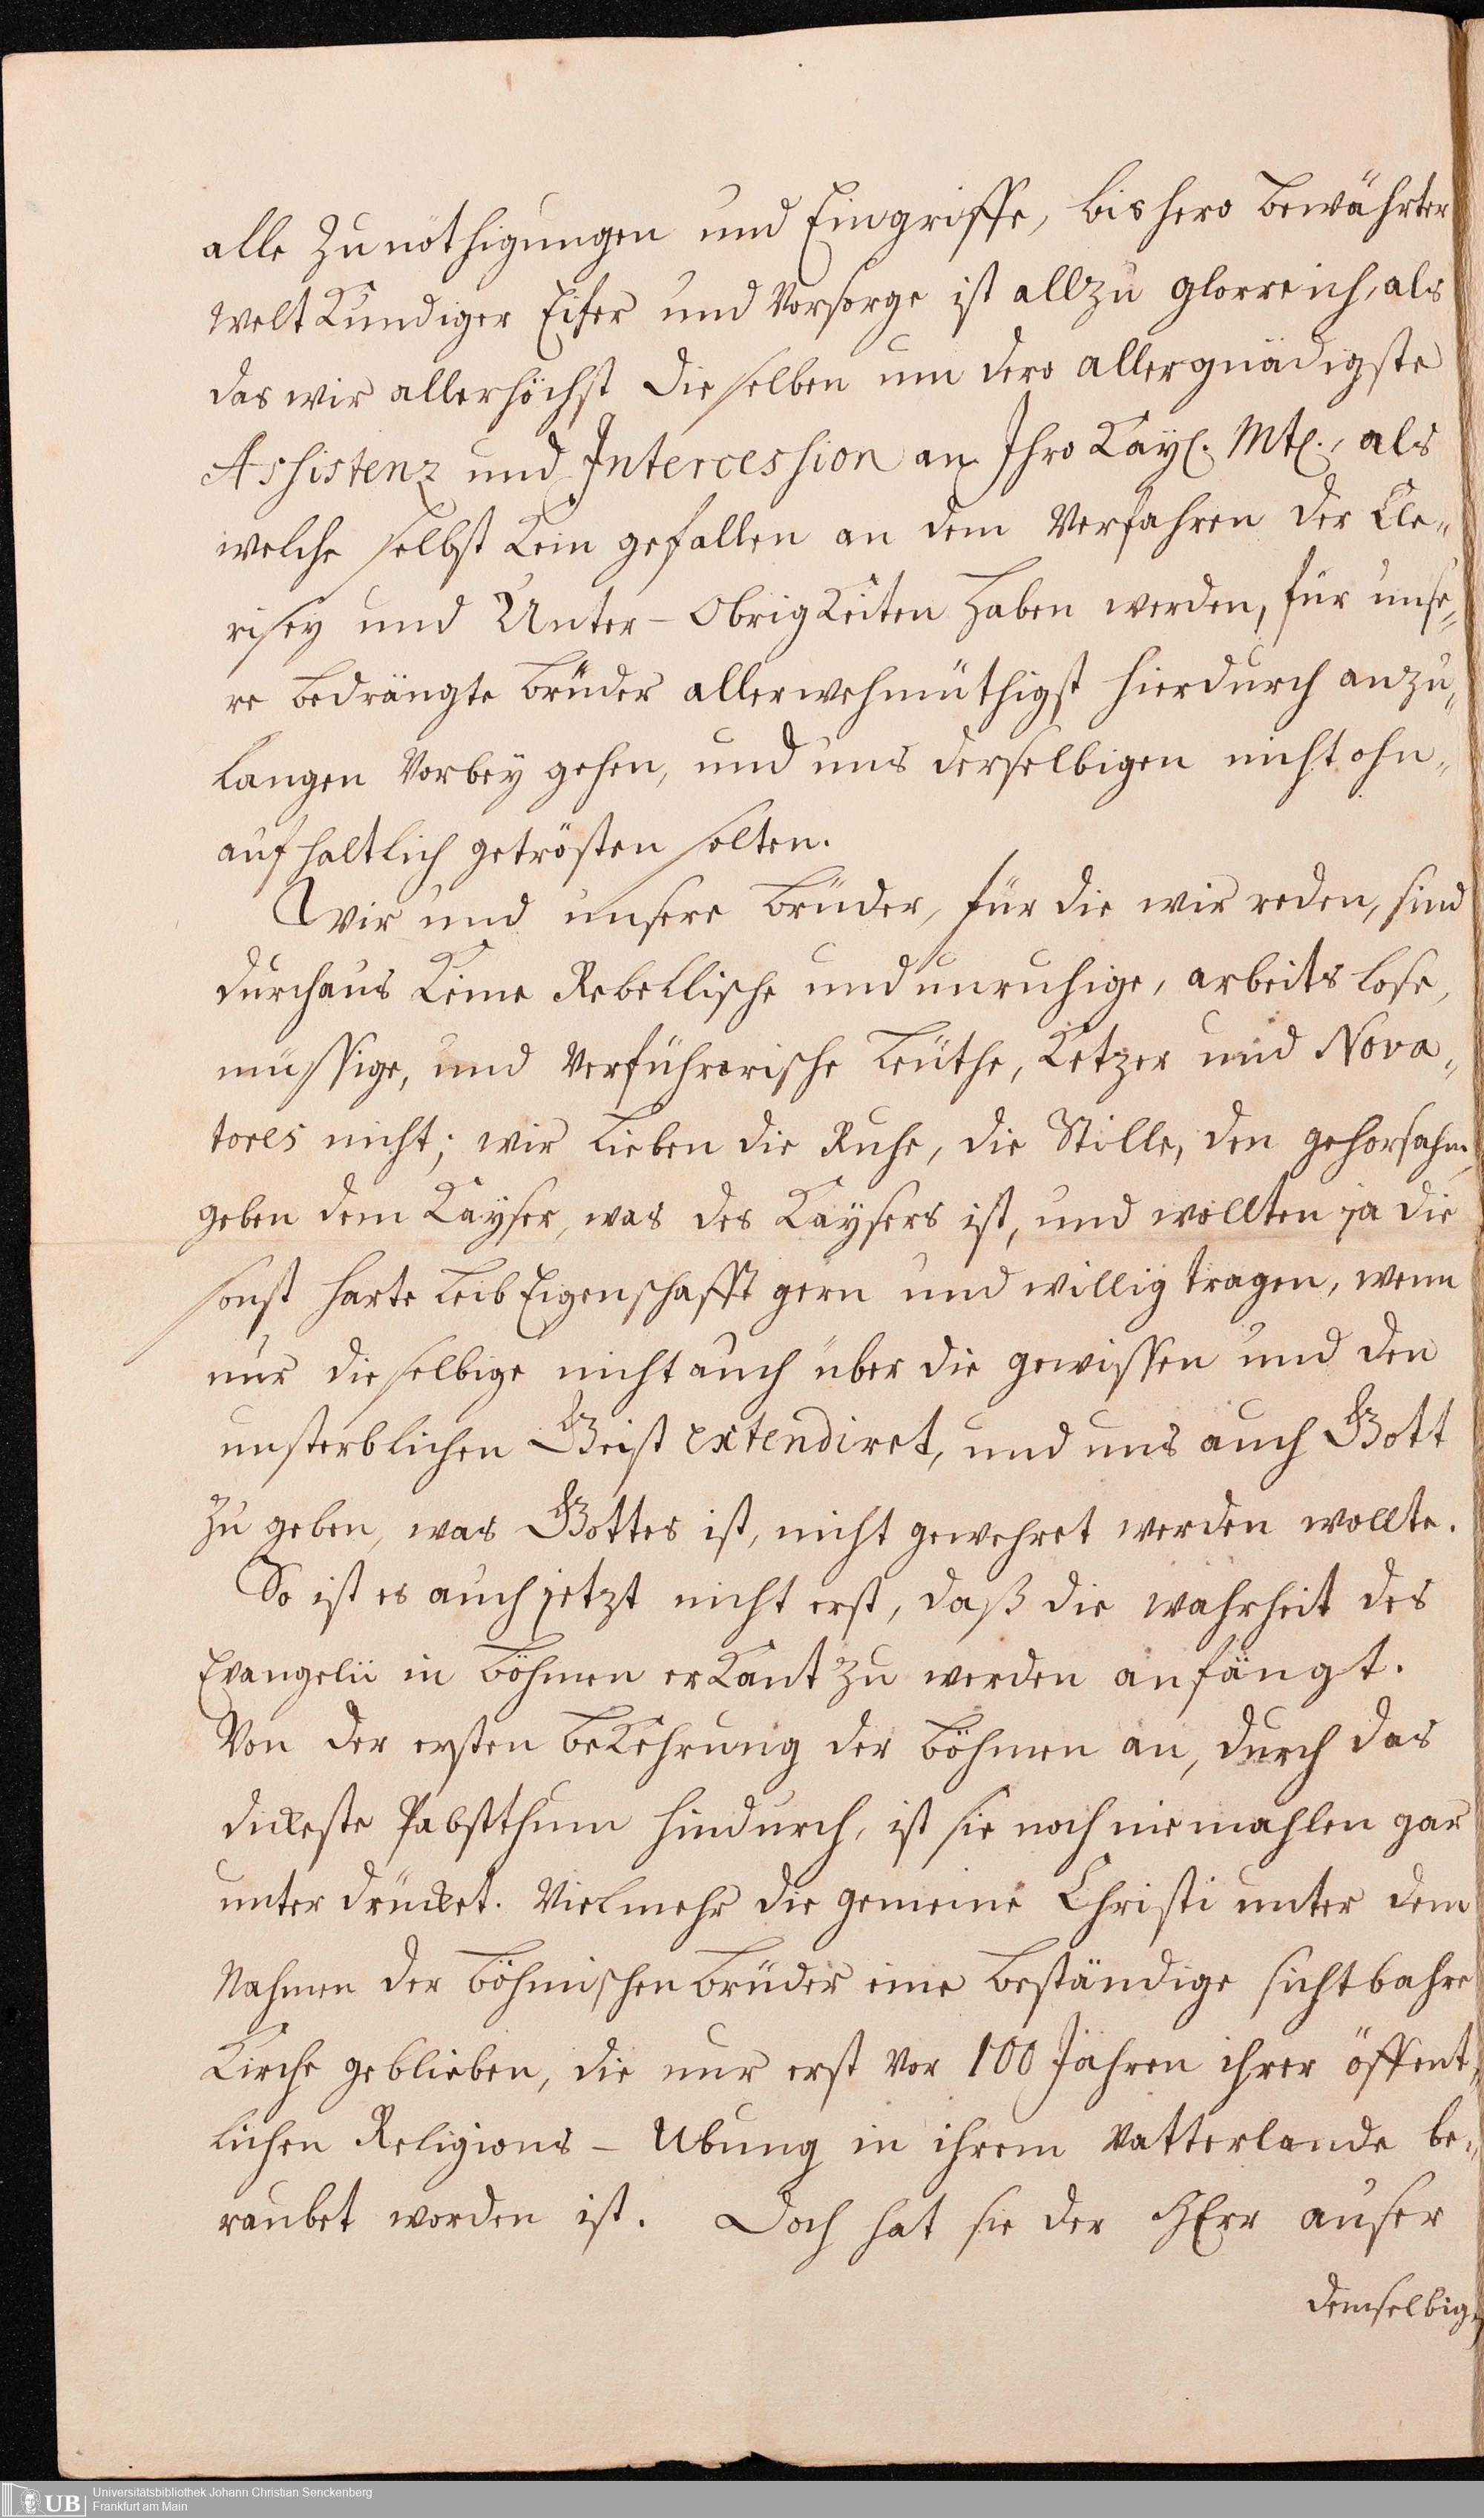 alle Zunöthigungen und Eingriffe, bishero bewährter
weltkundiger Eifer und Vorsorge ist allzu glorreich, als
das wir allerhöchst dieselben um dero allergnädigste
Assistenz und Intercession an Ihro Kayl. Mtl., als
welche selbst kein gefallen an dem Verfahren der Cle„
risey und Unter-Obrigkeiten haben werden, für unse„
re bedrängte Brüder allerwehmüthigst hierdurch anzu„
langen vorbey gehen, und uns derselbigen nicht ohn„
aufhaltlich getrösten solten.
Wir und unsere Brüder, für die wir reden, sind
durchaus keine Rebellische und unruhige, arbeitslose,
müssige, und verführerische Leüthe, Ketzer und Nova„
tores nicht; wir lieben die Ruhe, die Stille, den gehorsahm,
geben dem Kayser, was des Kaysers ist, und wollten ja die
sonst harte LeibEigenschafft gern und willig tragen, wenn
nur dieselbige nicht auch über die gewissen und den
unsterblichen Geist extendiret, und uns auch Gott
zu geben, was Gottes ist, nicht gewehret werden wollte.
So ist es auch jetzt nicht erst, daß die wahrheit des
Evangelii in Böhmen erkant zu werden anfängt.
Von der ersten bekehrung der Böhmen an, durch das
dickeste Pabstthum hindurch, ist sie noch niemahlen gar
unterdrücket. Vielmehr die gemeine Christi unter dem
Nahmen der Böhmischen Brüder eine beständige sichtbahre
Kirche geblieben, die nur erst vor 100 Jahren ihrer öffent„
lichen Religions-Ubung in ihrem Vatterlande be„
raubet worden ist. Doch hat sie der HErr auser
demselbigen
Universitätsbibliothek Johann Christian Senckenberg
Frankfurt am Main
UB